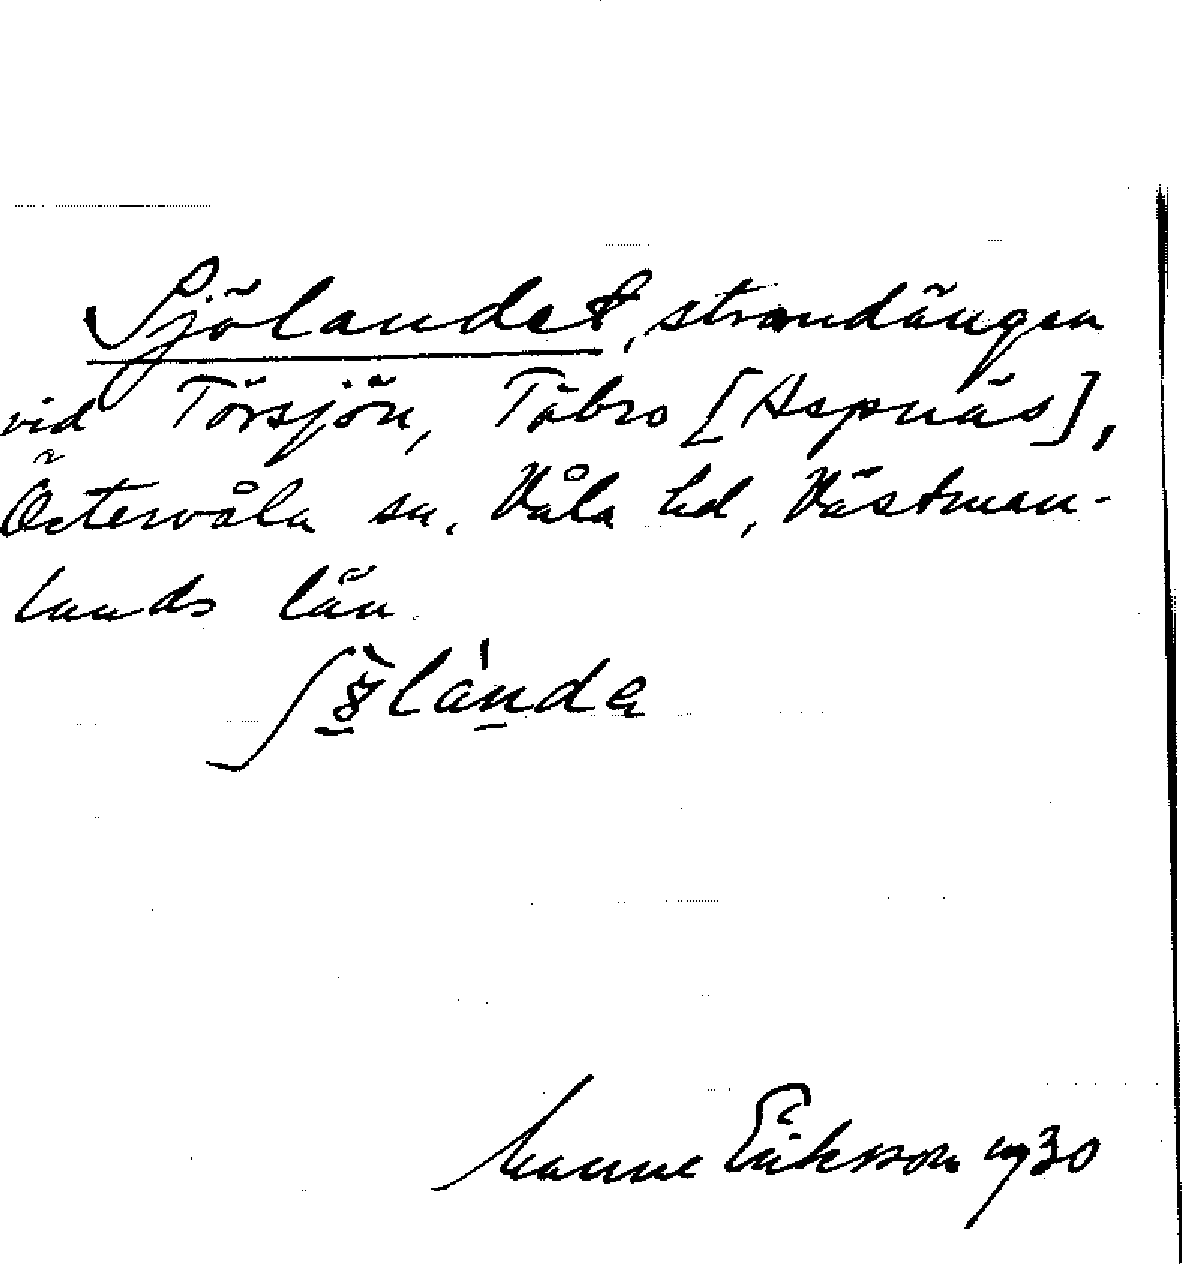 Sjölandet, strandängen
vid Törsjön, Täbro [Aspnäs],
Östervåla sn. Våla hd, Västman-
lands län.
Manne Eriksson 1930